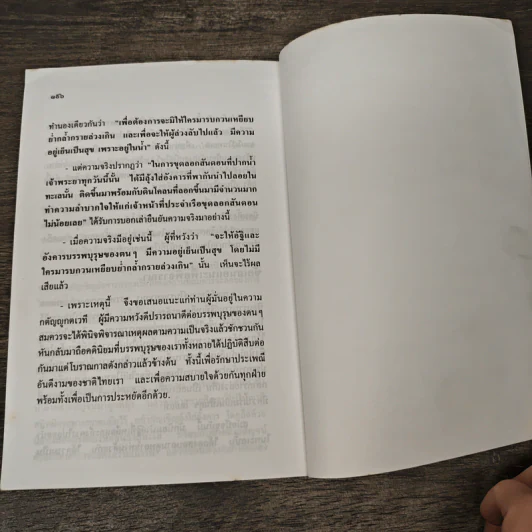 ๑๕๖
ทำนองเดียวกันว่า "เพื่อต้องการจะมิให้ใครมารบกวนเหยียบ
ย่ำกล้ำกรายล่วงเกิน และเพื่อจะให้ผู้ล่วงลับไปแล้ว มีความ
อยู่เย็นเป็นสุข เพราะอยู่ในน้ำ" ดังนี้
- แต่ความจริงปรากฏว่า "ในการขุดลอกสันดอนที่ปากน้ำ
เจ้าพระยาทุกวันนี้นั้น ได้มีลุ้งใส่อังคารที่พากันนำไปลอยใน
ทะเลนั้น ติดขึ้นมาพร้อมกับดินโคลนที่ลอกขึ้นมามีจำนวนมาก
ทำความลำบากใจให้แก่เจ้าหน้าที่ประจำเรือขุดลอกสันดอน
ไม่น้อยเลย" ได้รับการบอกเล่ายืนยันความจริงมาอย่างนี้
- เมื่อความจริงมีอยู่เช่นนี้ ผู้ที่หวังว่า "จะให้อัฐิและ
อังคารบรรพบุรุษของตนๆ มีความอยู่เย็นเป็นสุข โดยไม่มี
ใครมารบกวนเหยียบย่ำกล้ำกรายล่วงเกิน" นั้น เห็นจะไร้ผล
เสียแล้ว
- เพราะเหตุนี้ จึงขอเสนอแนะแก่ท่านผู้มั่นอยู่ในความ
กตัญญูกตเวที ผู้มีความหวังดีปรารถนาดีต่อบรรพบุรุษของตนๆ
สมควรจะได้พินิจพิจารณาเหตุผลตามความเป็นจริงแล้วชักชวนกัน
หันกลับมาถือคตินิยมที่บรรพบุรุษของเราทั้งหลายได้ปฏิบัติสืบต่อ
กันมาแต่โบราณกาลดังกล่าวแล้วข้างต้น ทั้งนี้เพื่อรักษาประเพณี
อันดีงามของชาติไทยเรา และเพื่อความสบายใจด้วยกันทุกฝ่าย
พร้อมทั้งเพื่อเป็นการประหยัดอีกด้วย.